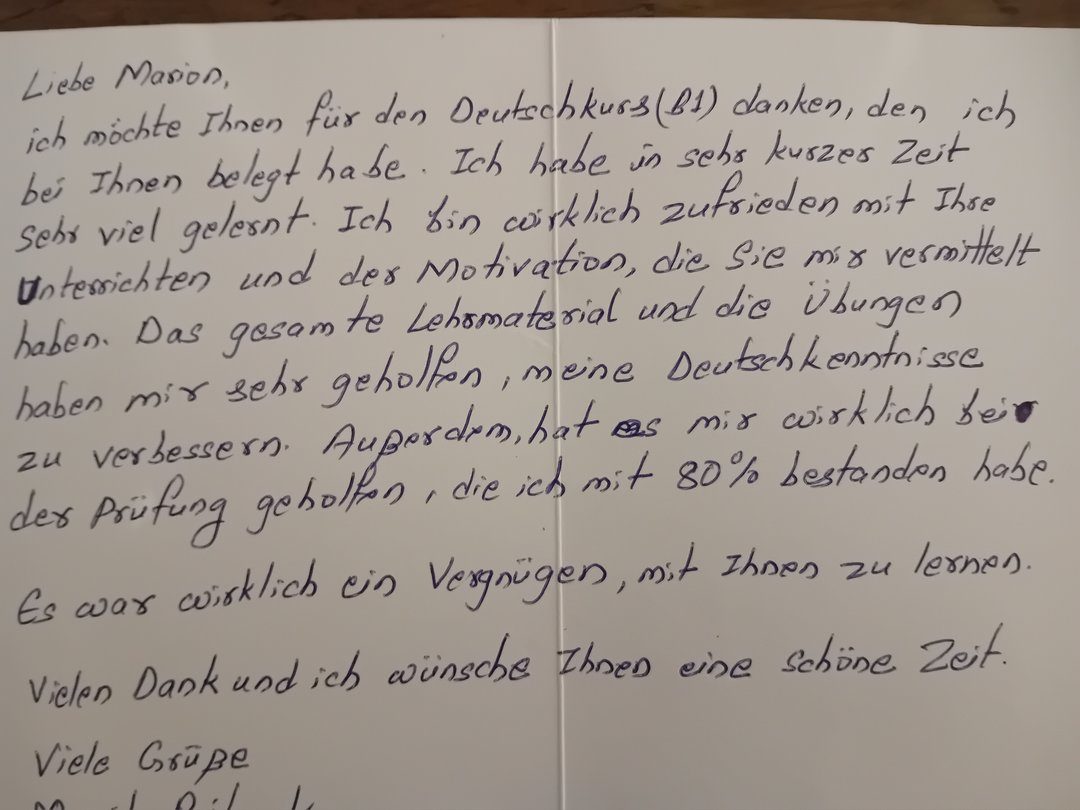 Liebe Marion,
ich möchte Ihnen für den Deutschkurs (B1) danken, den ich
bei Ihnen belegt habe. Ich habe in sehr kurzer Zeit
sehr viel gelernt. Ich bin wirklich zufrieden mit Ihre
Unterrichten und der Motivation, die Sie mir vermittelt
haben. Das gesamte Lehrmaterial und die Übungen
haben mir sehr geholfen, meine Deutschkenntnisse
zu verbessern. Außerdem, hat es mir wirklich bei
der Prüfung geholfen, die ich mit 80% bestanden habe.
Es war wirklich ein Vergnügen, mit Ihnen zu lernen.
Vielen Dank und ich wünsche Ihnen eine schöne Zeit.
Viele Grüße